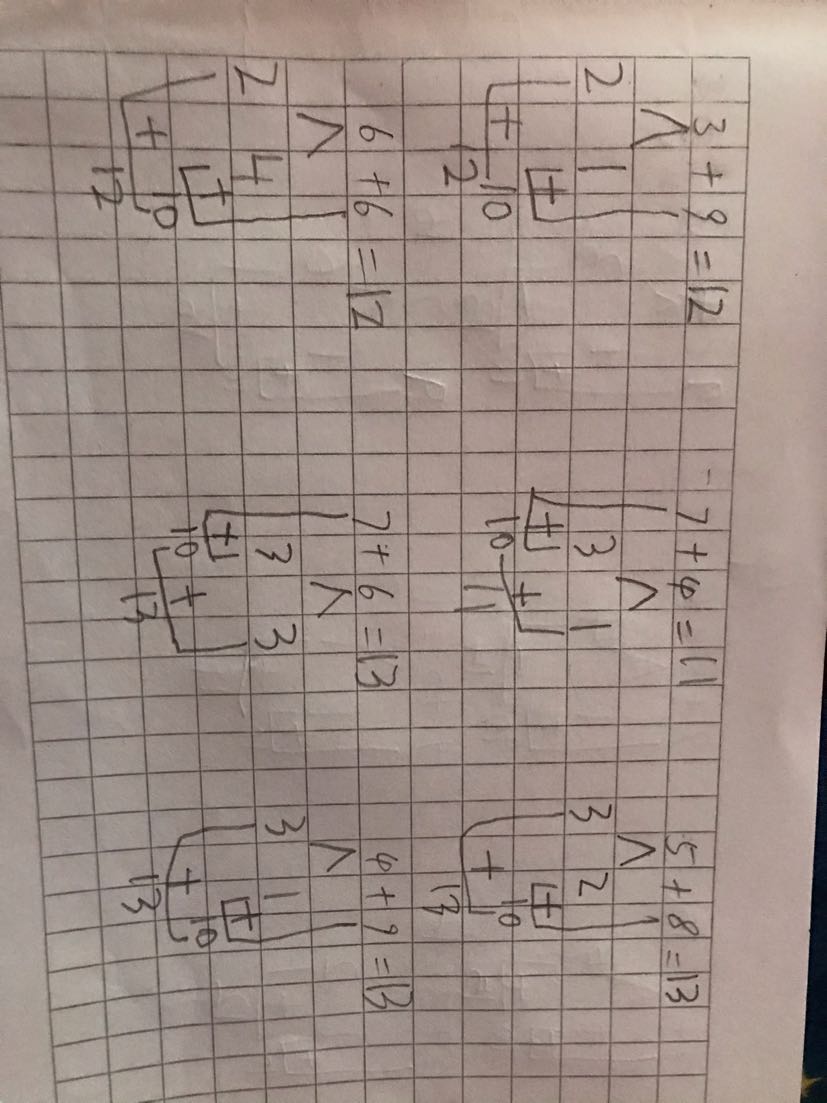 3+9=12 7+4=11 5+8=13
∧ ∧ ∧
2 1 3 1 3 2
+ + +
+ 10 10 + + 10
12 11 13
6+6=12 7+6=13 4+9=13
∧ ∧ ∧
2 4 3 3 3 1
+ + +
+ 10 10 + + 10
12 13 13